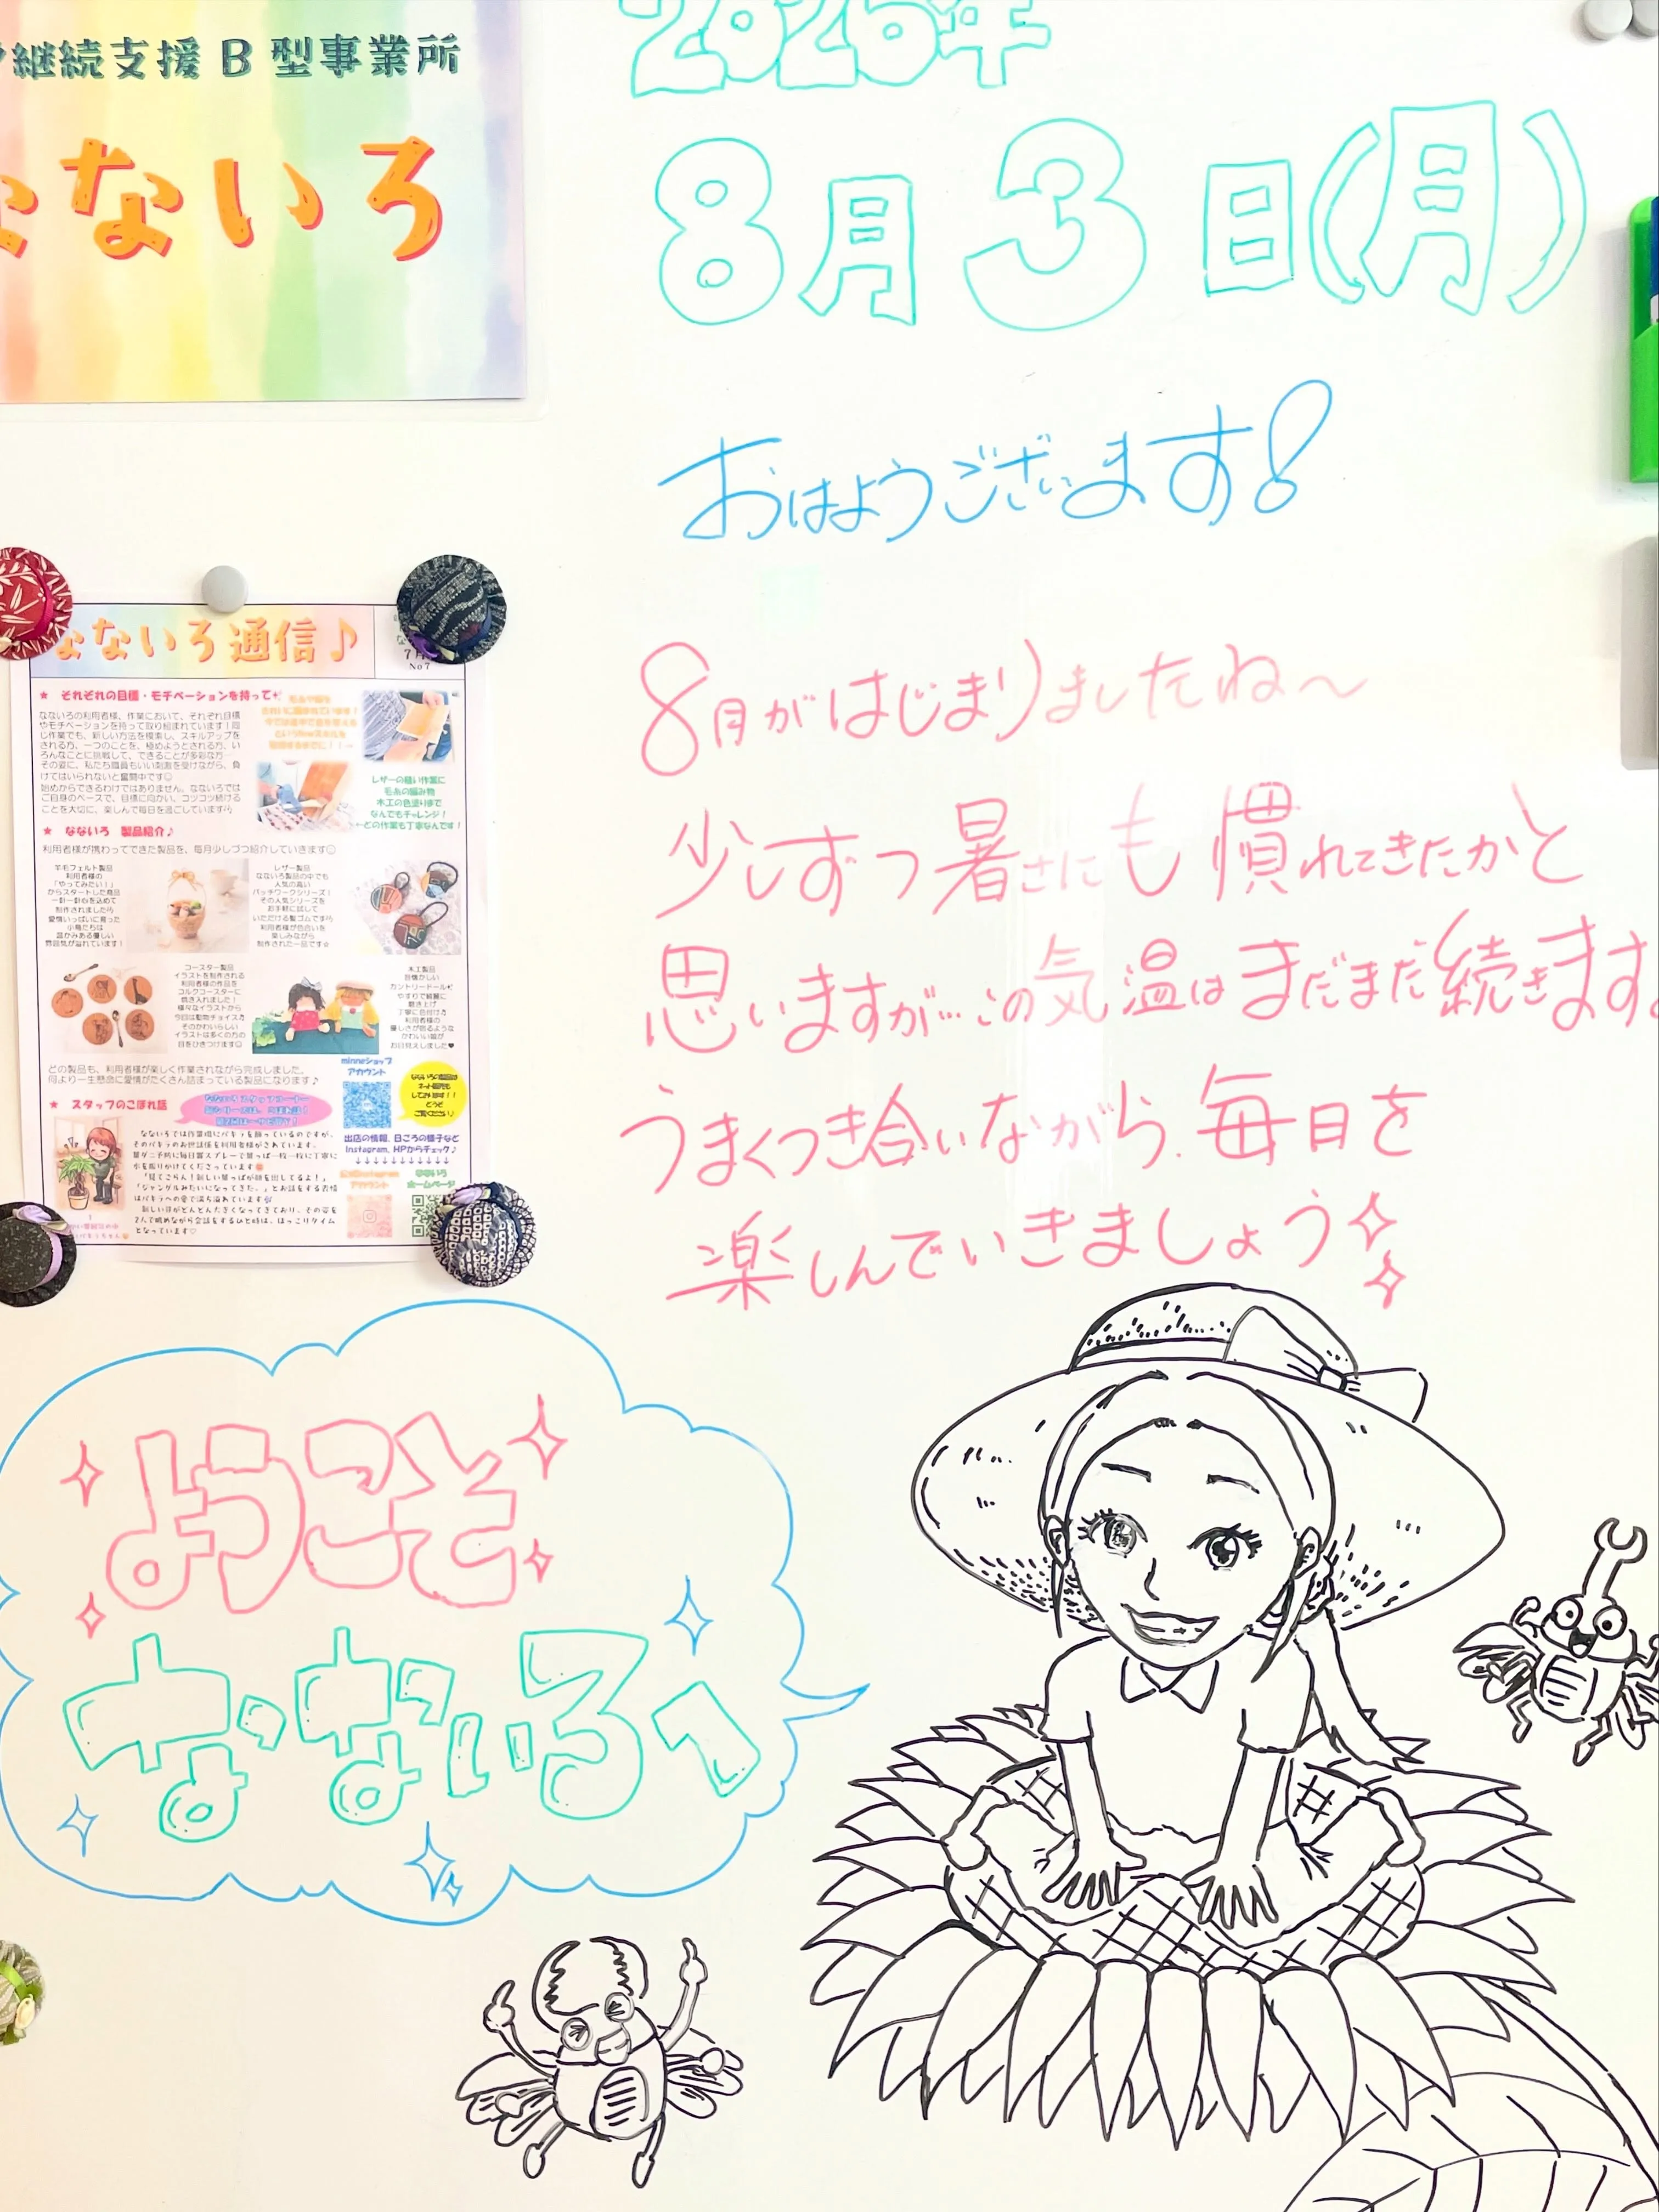 継続支援B型事業所
なないろ
2026年
8月3日(月)
おはようございます!
8月がはじまりましたね〜
少しずつ暑さにも慣れてきたかと
思いますが…この気温はまだまだ続きます。
うまくつき合いながら、毎日を
楽しんでいきましょう
ないろ通信♪
No7
★ それぞれの目標・モチベーションを持って
なないろの利用者様、作業において、それぞれ目標
やモチベーションを持って取り組まれています!同
じ作業でも、新しい方法を模索し、スキルアップを
される方、一つのことを、極めようとされる方、い
ろんなことに挑戦して、できることが多彩な方
その姿に、私たち職員もいい刺激を受けながら、負
けてはいられないと奮闘中です☺
始めからできるわけではありません。なないろでは
ご自身のペースで、目標に向かい、コツコツ続ける
ことを大切に、楽しんで毎日を過ごしています
レザーの縫い作業に
毛糸の編み物
木工の色塗りまで
なんでもチャレンジ!
どの作業も丁寧なんです!
★ なないろ 製品紹介♪
利用者様が携わってできた製品を、毎月少しづつ紹介していきます☺
羊毛フェルト製品
利用者様の
「やってみたい!」
からスタートした商品
一針一針心を込めて
制作されましたら
愛情いっぱいに育った
小鳥たちは
温かみある優しい
雰囲気が溢れています!
レザー製品
なないろ製品の中でも
人気の高い
パッチワークシリーズ!
その人気シリーズを
お手軽に試して
いただける髪ゴムです
利用者様が色合いを
楽しみながら
制作された一品です☺
コースター製品
イラストを制作される
利用者様の作品を
コルクコースターに
焼き入れました!
様々なイラストから
今回は動物チョイス
そのかわいらしい
イラストは多くの方の
目をひきつけます☺
木工製品
カントリードール
やすりで綺麗に
磨き上げ
丁寧に色付け
利用者様の
優しさが宿るような
かわいい姿が
お目見えしました♥
どの製品も、利用者様が楽しく作業されながら完成しました。
何より一生懸命に愛情がたくさん詰まっている製品になります♪
minneショップ
アカウント
★ スタッフのこぼれ話
出店の情報、日ごろの様子など
Instagram、HPからチェック♪
↓↓↓↓↓↓↓↓↓↓
なないろ
ホームページ
ようこそ
なないろへ